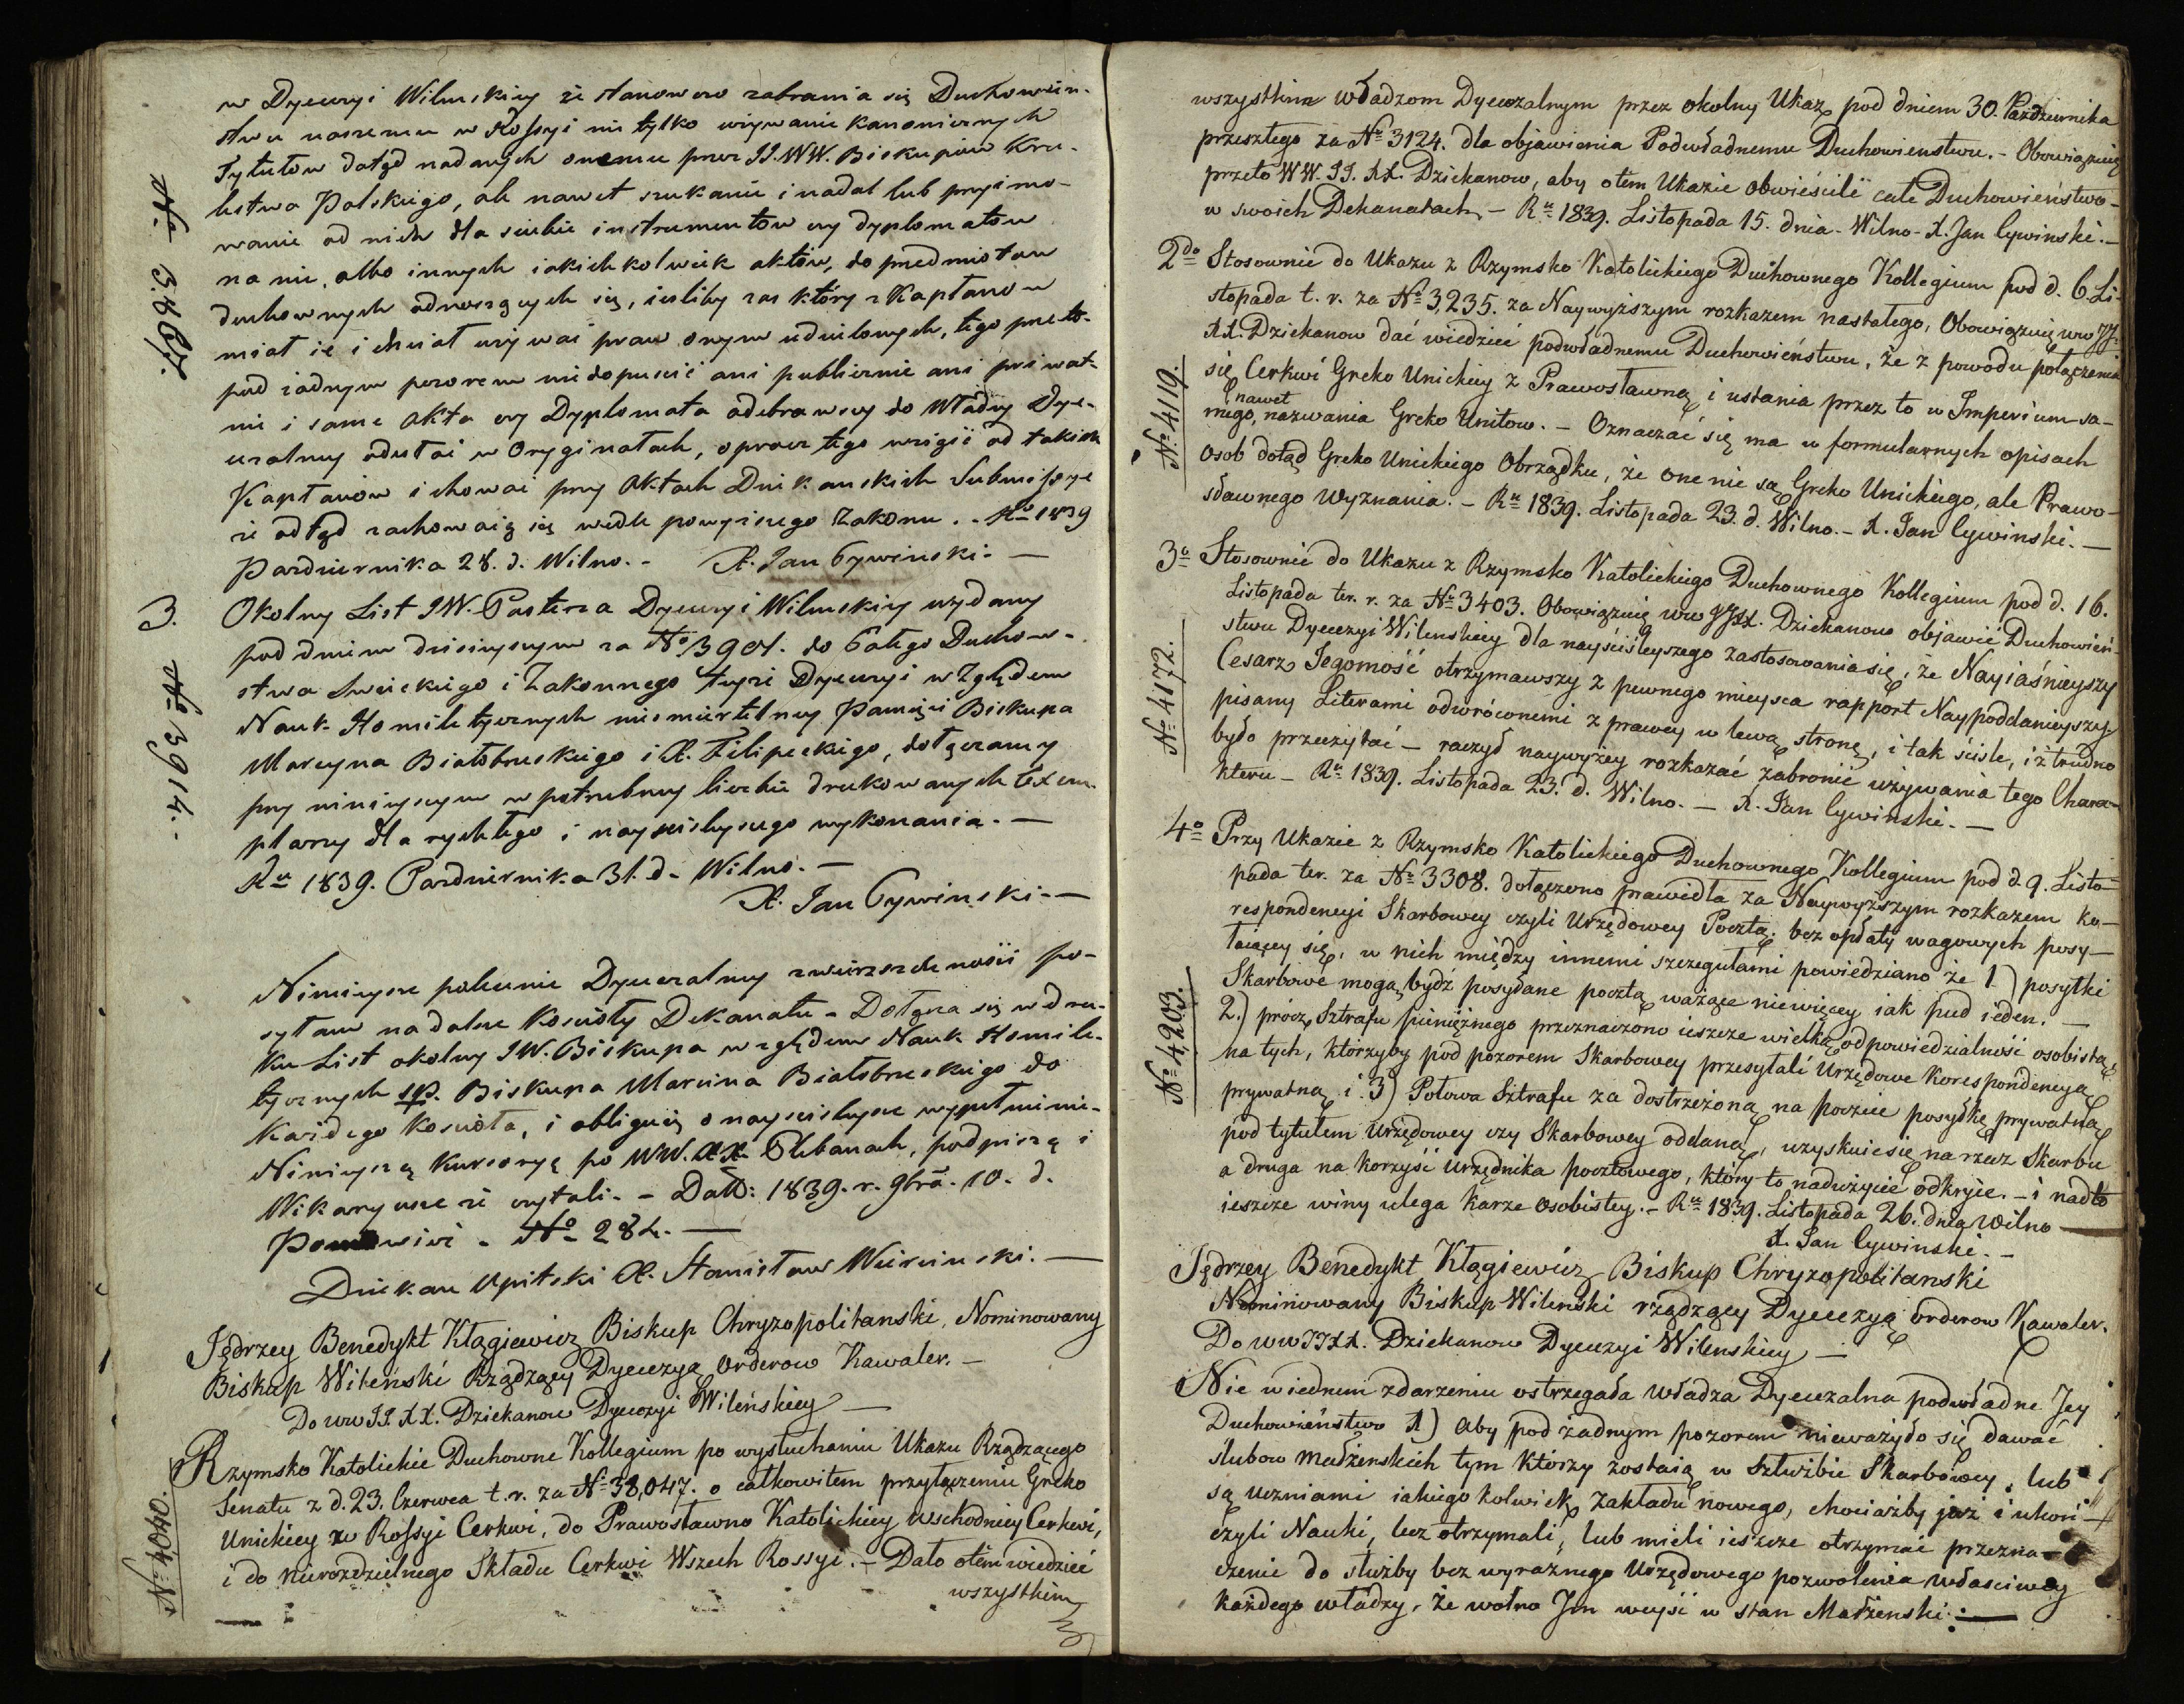 w Dyecezyi Wilenskiey że stanowczo zabrania się Duchowień-
stwu naszemu w Rossyi nie tylko używanie kanonicznych
Tytułow dotąd nadanych onemu przez JJ. WW. Biskupow Kro-
lestwa Polskiego, ale nawet szukanie i nadal lub przyimo-
wanie od nich dla siebie instrumentow czy dyplomatow
na nie, albo innych iakichkolwiek aktów, do przedmiotow
duchownych odnoszących się, ieśliby zas który z Kapłanow
miał ie i chciał używać praw onym udzielonych, tego prze to
pod żadnym pozorem niedopuscić ani publicznie ani priwat-
nie i same akta czy Dyplomata odebrawszy do Władzy Dye-
cezalney odesłać w Oryginałach, oprocz tego wziąść od takich
Kapłanów i chować przy Aktach Dziekanskich Submissye
że odtąd zachowaią się wedle powyższego Zakonu. - Ru 1839
Pazdziernika 28. d. Wilno. - X. Jan Cywinski. -
N. 3867.
3. Okolny List JW. Pasterza Dyecezyi Wilenskiey wydany
pod dniem dzisieyszym za No 3901. do Całego Duchow-
stwa Swieckiego i Zakonnego teyże Dyecezyi względem
Nauk Homiletycznych niesmiertelney Pamięci Biskupa
Marcyna Białobrzeskiego i X. Filipeckiego, dołączamy
przy ninieyszym w potrzebney liczbie drukowanych Exem-
plarzy dla rychłego i nayscisleyszego wykonania. -
Ru 1839. Pazdziernika 31. d. Wilno. -
X. Jan Cywinski. -
No 3914. -
Ninieysze polecenie Dyecezalney zwierzchnosci po-
syłam na dalsze Kościoły Dekanatu - Dołącza się w dru-
ku List okolny JW. Biskupa względem Nauk Homile-
tycznych sp. Biskupa Marcina Białobrzeskiego do
Każdego Koscioła, i obliguię o nayscisleysze wypełnienie.
Ninieyszą Kursoryą po WW. XX. Plebanach, podpiszą i
Wikaryusze że czytali. - Datt: 1839. r. 9bra. 10. d.
Poniewież - No 282. -
Dziekan Upitski X. Stanisław Wierciński. -
Jędrzey Benedykt Kłągiewicz Biskup Chryzopolitanski, Nominowany
Biskup Wileński Rządzący Dyecezyą Orderow Kawaler. -
Do WW JJ. XX. Dziekanow Dyecezyi Wileńskiey -
Rzymsko Katolickie Duchowne Kollegium po wysłuchaniu Ukazu Rządzącego
Senatu z d. 23. Czerwca t. r. za No 38,047. o całkowitem przyłączeniu Greko
Unickiey w Rossyi Cerkwi, do Prawosławno Katolickiey Wschodniey Cerkwi,
i do nierozdzielnego Składu Cerkwi Wszech Rossyi. - Dało otem wiedzieć
wszystkim
No 4040.
wszystkim Władzom Dyecezalnym przez okolny Ukaz pod dniem 30. Października
przeszłego za No 3124. dla objawienia Podwładnemu Duchowienstwu. - Obowiązuię
przeto WW. JJ. XX. Dziekanow, aby otem Ukazie obwieścili całe Duchowieństwo
w swoich Dekanatach. - Ru 1839. Listopada 15. dnia. Wilno. X. Jan Cywinski. -
2do Stosownie do Ukazu z Rzymsko Katolickiego Duchownego Kollegium pod d. 6. Li-
stopada t. r. za No 3,235. za Naywyższym rozkazem nastałego, Obowiązuię WW JJ.
XX. Dziekanow dać wiedzieć podwładnemu Duchowieństwu, że z powodu połączenia
się Cerkwi Greko Unickiey z Prawosławną i ustania przez to w Imperium sa-
nawet
mego, nazwania Greko Unitow. - Oznaczać się ma w formularnych opisach
osob dotąd Greko Unickiego Obrządku, że one nie są Greko Unickiego, ale Prawo-
sławnego Wyznania. - Ru 1839. Listopada 23. d. Wilno. - X. Jan Cywinski. -
No 4119.
3o Stosownie do Ukazu z Rzymsko Katolickiego Duchownego Kollegium pod d. 16.
Listopada ter. r. za No 3403. Obowiązuię WW JJ XX. Dziekanow objawić Duchowień-
stwu Dyecezyi Wilenskiey dla nayściśleyszego zastosowania się, że Nayiaśnieyszy
Cesarz Jegomość otrzymawszy z pewnego mieysca rapport Naypoddanieyszy,
pisany Literami odwróconemi z prawey w lewą stronę, i tak ściśle, iż trudno
było przeczytać - raczył naywyżey rozkazać zabronić używania tego Chara-
kteru - Ru 1839. Listopada 23. d. Wilno. - X. Jan Cywinski. -
No 4172.
4o Przy Ukazie z Rzymsko Katolickiego Duchownego Kollegium pod d. 9. Listo-
pada ter. za No 3308. dołączono prawidła za Naywyższym rozkazem ko-
respondencyi Skarbowey czyli Urzędowey Pocztą bez opłaty wagowych posy-
łaiącey się, w nich między innemi szczegułami powiedziano że 1.) posyłki
Skarbowe mogą bydź posyłane pocztą ważące niewięcey iak pud ieden. -
2.) prócz Sztrafu pieniężnego przeznaczono ieszcze wielką odpowiedzialność osobistą
na tych, którzyby pod pozorem Skarbowey przesyłali Urzędowe Korespondencyą
prywatną i 3) Połowa Sztrafu za dostrzeżoną na poczcie posyłkę prywatną
pod tytułem Urzędowey czy Skarbowey oddaną, uzyskuie się na rzecz Skarbu
a druga na korzyść Urzędnika pocztowego, który to nadużycie odkryie. - i nadto
ieszcze winy ulega karze osobistey. - Ru 1839. Listopada 26. dnia Wilno
X. Jan Cywinski. -
No 4203.
Jędrzey Benedykt Kłągiewicz Biskup Chryzopolitanski
Nominowany Biskup Wilenski rządzący Dyecezyą Orderow Kawaler.
Do WW JJ XX. Dziekanow Dyecezyi Wilenskiey -
Nie w iednem zdarzeniu ostrzegała Władza Dyecezalna podwładne Jey
Duchowieństwo 1) Aby pod żadnym pozorem nieważyło się dawać
slubow Małżenskich tym którzy zostaią w Służbie Skarbowey, lub
są uczniami iakiego kolwiek Zakładu nowego, chociażby już i ukoń-
czyli Nauki, lecz otrzymali, lub mieli ieszcze otrzymać przezna-
czenie do służby bez wyraznego Urzędowego pozwolenia właściwey
każdego władzy, że wolno Jm weyść w stan Małżenski: -